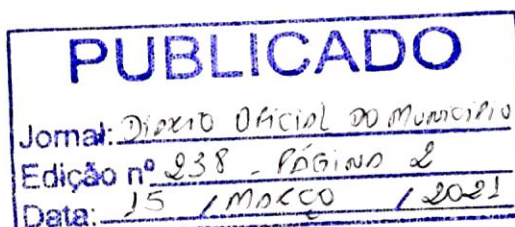 PUBLICADO
Jornal: Diário Oficial do Município
Edição nº 238 - PÁGINA 2
Data: 15 / MARÇO / 2021